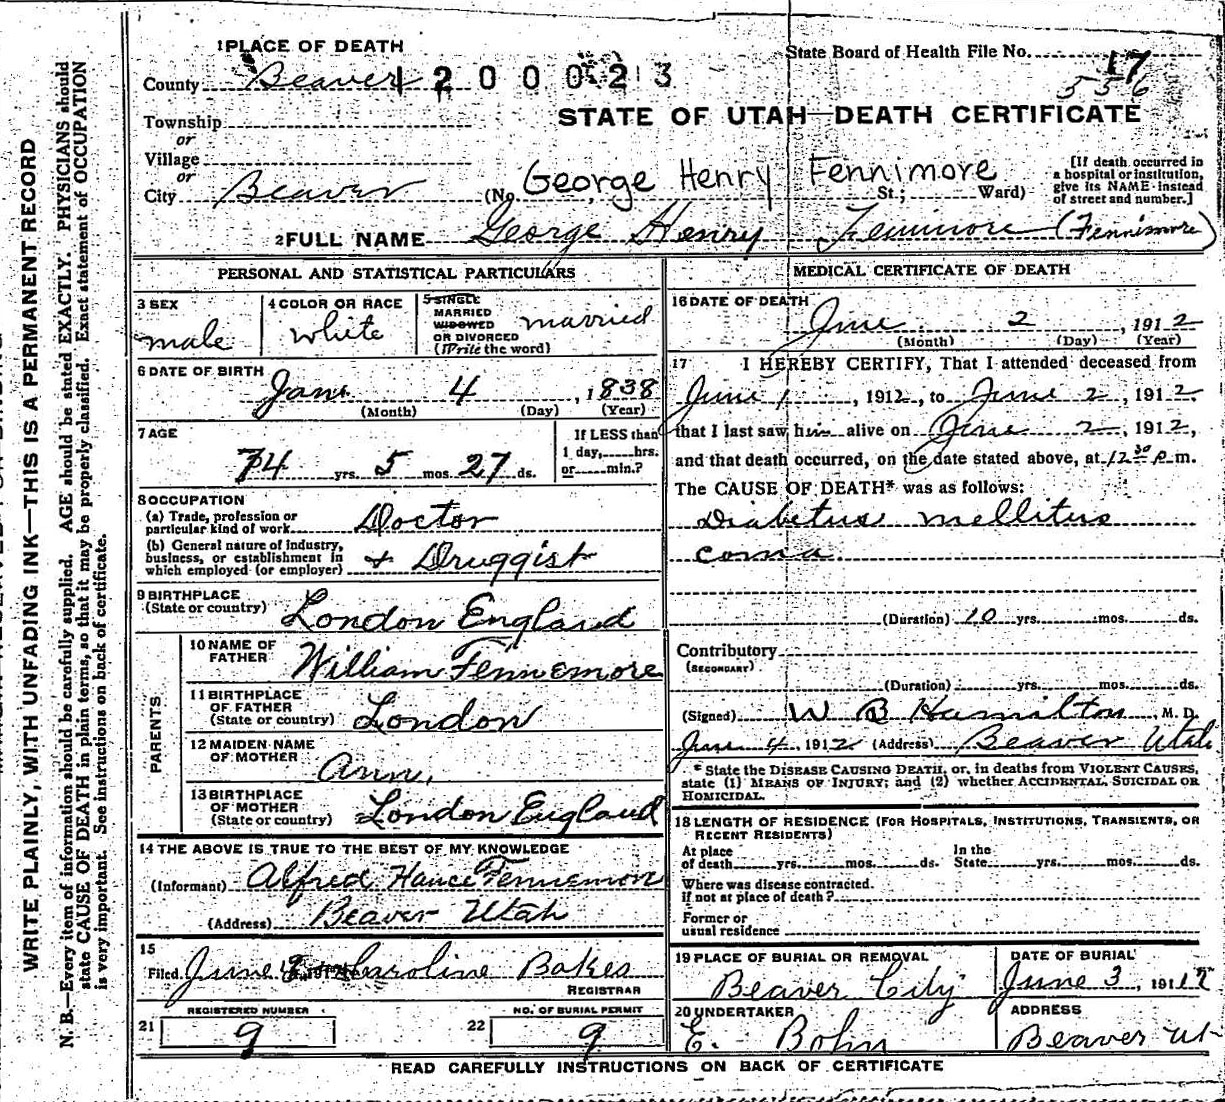 1 PLACE OF DEATH
State Board of Health File No. 17
556
County Beaver 1200023
STATE OF UTAH—DEATH CERTIFICATE
Township
or
Village
or
City Beaver (No. George Henry Fennimore St.; Ward)
[If death occurred in
a hospital or institution,
give its NAME instead
of street and number.]
2 FULL NAME George Henry Fennimore (Fennimore)
PERSONAL AND STATISTICAL PARTICULARS
3 SEX
male
4 COLOR OR RACE
White
5 SINGLE
MARRIED
WIDOWED
OR DIVORCED
(Write the word)
married
6 DATE OF BIRTH
Jan. 4, 1838
(Month) (Day) (Year)
7 AGE
74 yrs. 5 mos. 27 ds.
If LESS than
1 day, hrs.
or min.?
8 OCCUPATION
(a) Trade, profession or
particular kind of work Doctor
(b) General nature of industry,
business, or establishment in
which employed (or employer) + Druggist
9 BIRTHPLACE
(State or country) London England
PARENTS
10 NAME OF
FATHER William Fennemore
11 BIRTHPLACE
OF FATHER
(State or country) London
12 MAIDEN NAME
OF MOTHER Ann,
13 BIRTHPLACE
OF MOTHER
(State or country) London England
14 THE ABOVE IS TRUE TO THE BEST OF MY KNOWLEDGE
(Informant) Alfred Fennemore
(Address) Beaver Utah
15
Filed June Caroline Bakes
REGISTRAR
21 REGISTERED NUMBER
9
22 NO. OF BURIAL PERMIT
9
MEDICAL CERTIFICATE OF DEATH
16 DATE OF DEATH
June 2, 1912
(Month) (Day) (Year)
17 I HEREBY CERTIFY, That I attended deceased from
June 1, 1912, to June 2, 1912,
that I last saw him alive on June 2, 1912,
and that death occurred, on the date stated above, at 12 30 P. m.
The CAUSE OF DEATH* was as follows:
Diabetus mellitus
coma
(Duration) 10 yrs. mos. ds.
Contributory
(SECONDARY)
(Duration) yrs. mos. ds.
(Signed) W B Hamilton, M. D.
June 4, 1912 (Address) Beaver Utah
* State the DISEASE CAUSING DEATH, or, in deaths from VIOLENT CAUSES,
state (1) MEANS OF INJURY; and (2) whether ACCIDENTAL, SUICIDAL OR
HOMICIDAL.
18 LENGTH OF RESIDENCE (FOR HOSPITALS, INSTITUTIONS, TRANSIENTS, OR
RECENT RESIDENTS)
At place
of death yrs. mos. ds.
In the
State yrs. mos. ds.
Where was disease contracted.
if not at place of death?
Former or
usual residence
19 PLACE OF BURIAL OR REMOVAL
Beaver City
DATE OF BURIAL
June 3, 1912
20 UNDERTAKER
E. Bohn
ADDRESS
Beaver Ut
READ CAREFULLY INSTRUCTIONS ON BACK OF CERTIFICATE
WRITE PLAINLY, WITH UNFADING INK—THIS IS A PERMANENT RECORD
N. B.—Every item of information should be carefully supplied. AGE should be stated EXACTLY. PHYSICIANS should
state CAUSE OF DEATH in plain terms, so that it may be properly classified. Exact statement of OCCUPATION
is very important. See instructions on back of certificate.